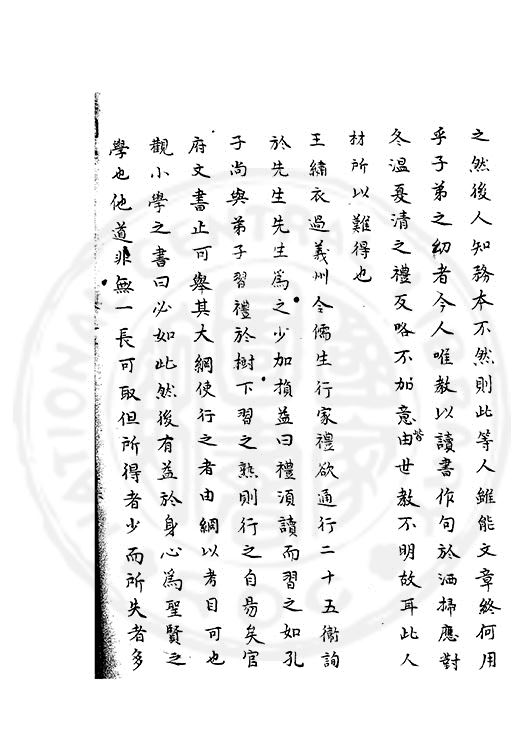 之然後人知務本不然則此等人雖能文章終何用
乎子弟之幼者今人唯教以讀書作句於洒掃應對
冬溫夏凊之禮反略不加意由皆世教不明故耳此人
材所以難得也
王繡衣過義州令儒生行家禮欲通行二十五衛詢
於先生先生爲之少加損益曰禮須讀而習之如孔
子尚與弟子習禮於樹下習之熟則行之自易矣官
府文書止可舉其大綱使行之者由綱以考目可也
觀小學之書曰必如此然後有益於身心爲聖賢之
學也他道非無一長可取但所得者少而所失者多